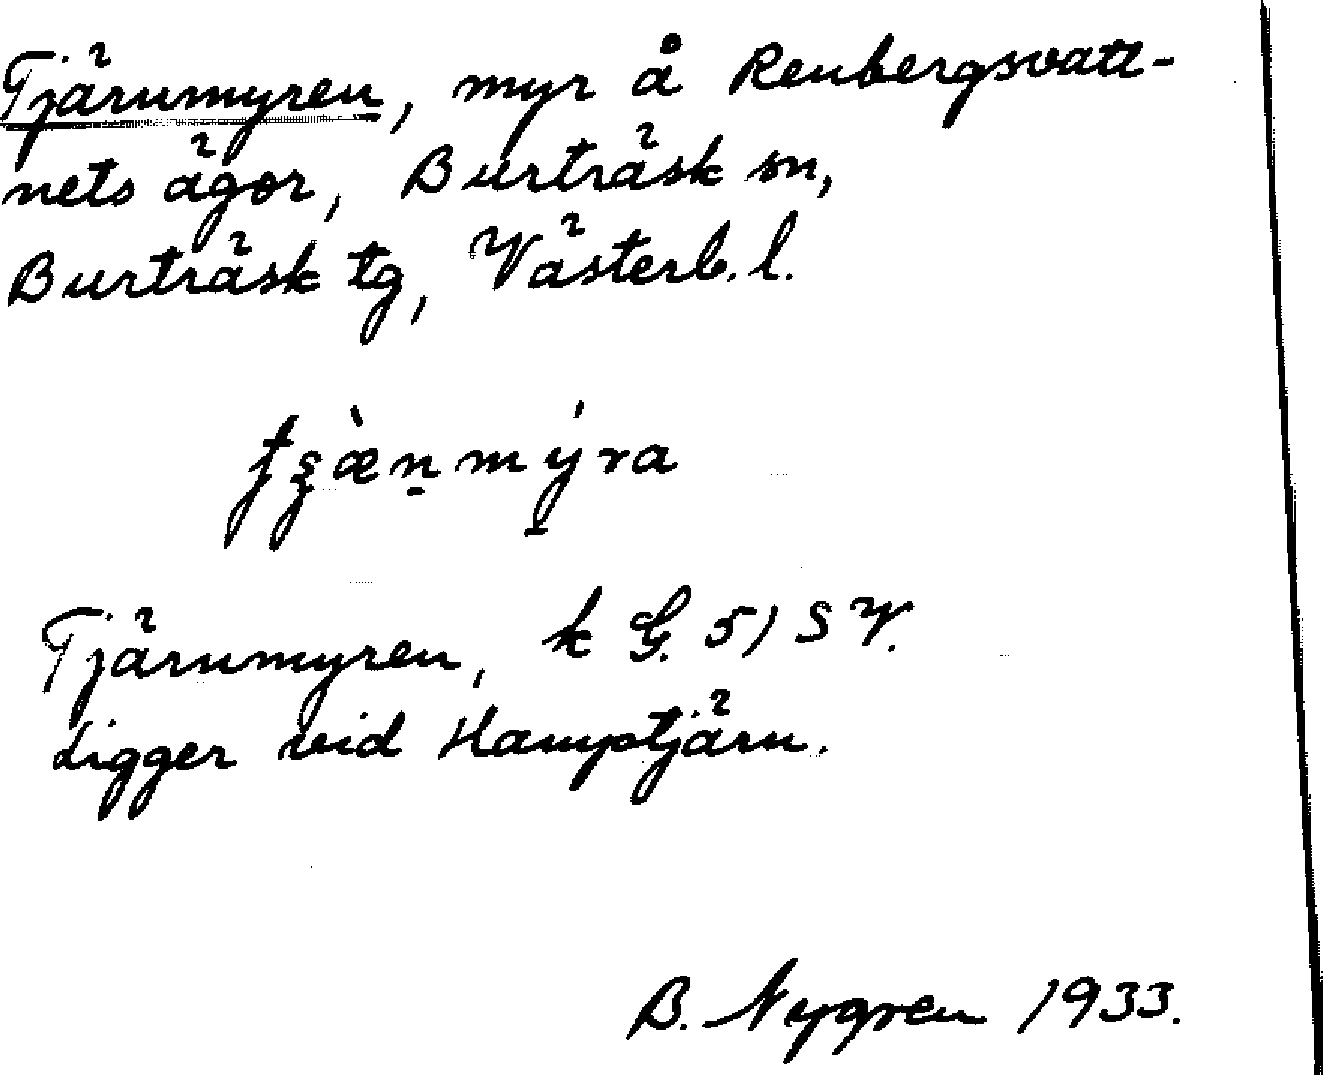 Tjärnmyren, myr å Renbergsvatt-
nets ägor, Burträsk sn,
Burträsk tg, Västerb. l.
Tjärnmyren, k G. 5) SV.
Ligger vid Hamptjärn.
B. Nygren 1933.